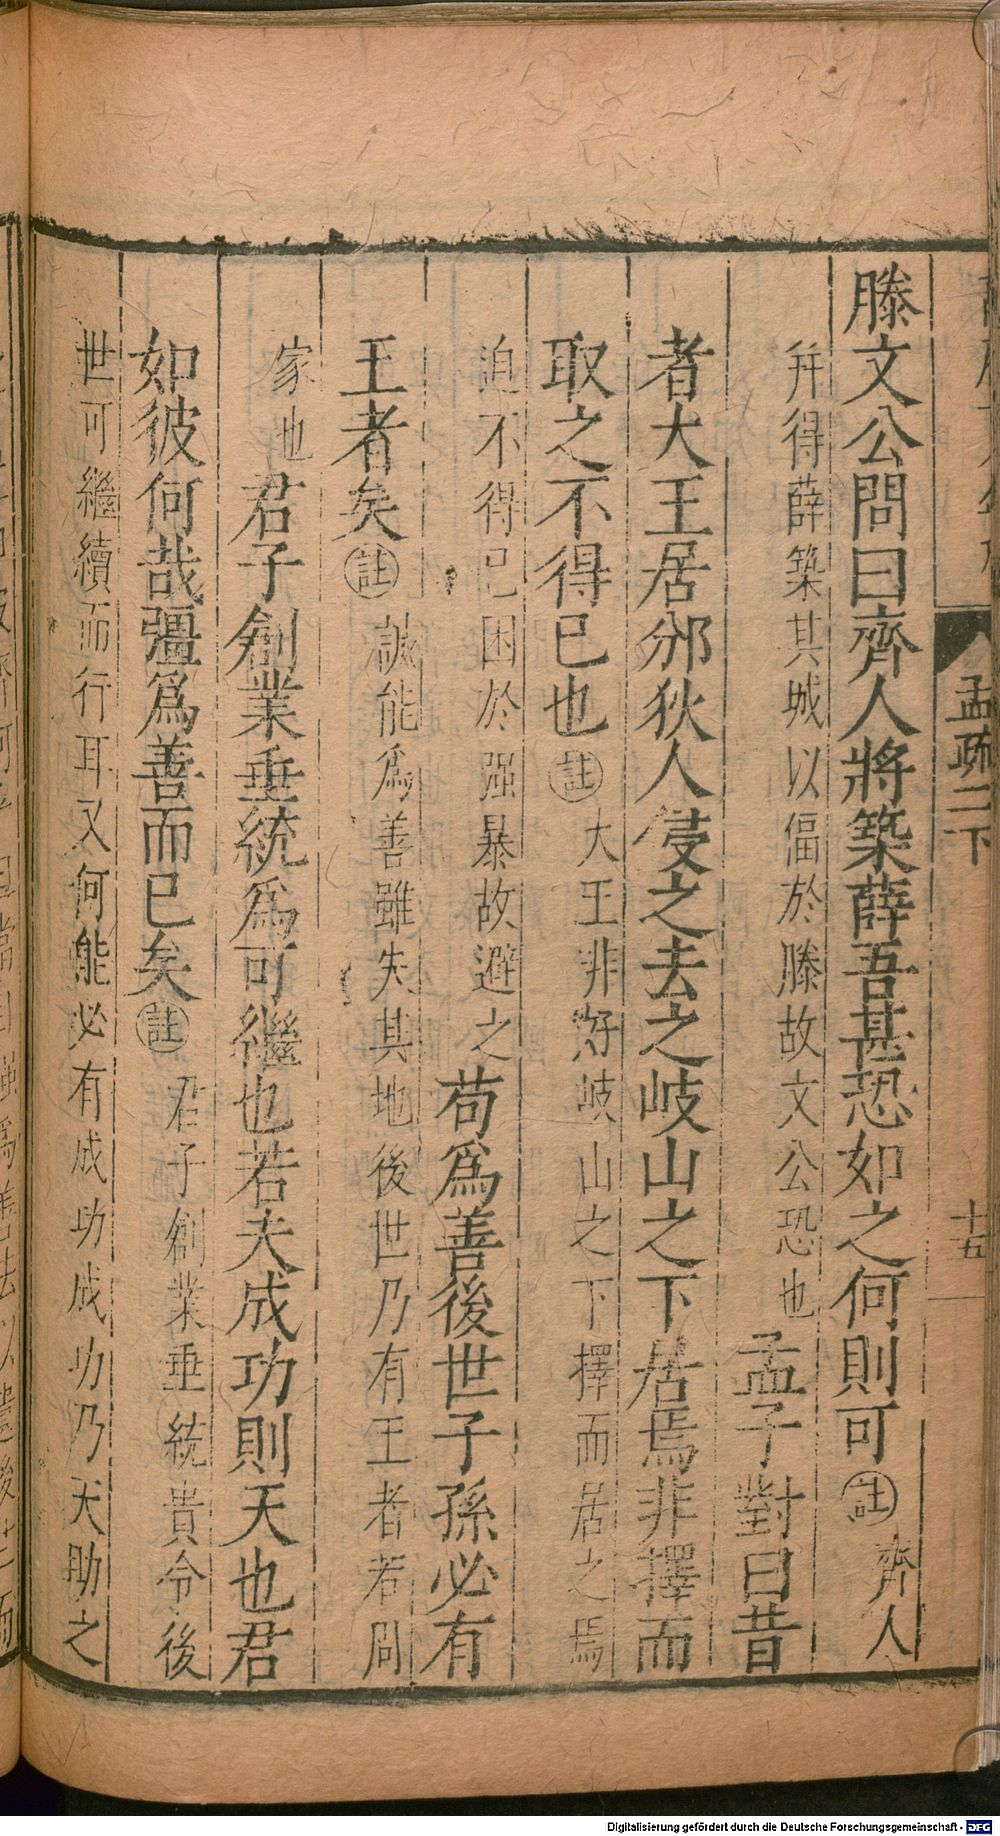 孟疏二下
十五
滕文公問曰齊人將築薛吾甚恐如之何則可註齊人
并得薛築其城以偪於滕故文公恐也孟子對曰昔
者大王居邠狄人侵之去之岐山之下居焉非擇而
取之不得已也註大王非好岐山之下擇而居之焉
迫不得已困於强暴故避之苟爲善後世子孫必有
王者矣註誠能爲善雖失其地後世乃有王者若周
家也君子創業垂統爲可繼也若夫成功則天也君
如彼何哉彊爲善而已矣註君子創業垂統貴令後
世可繼續而行耳又何能必有成功成功乃天助之
Digitalisierung gefördert durch die Deutsche Forschungsgemeinschaft - DFG